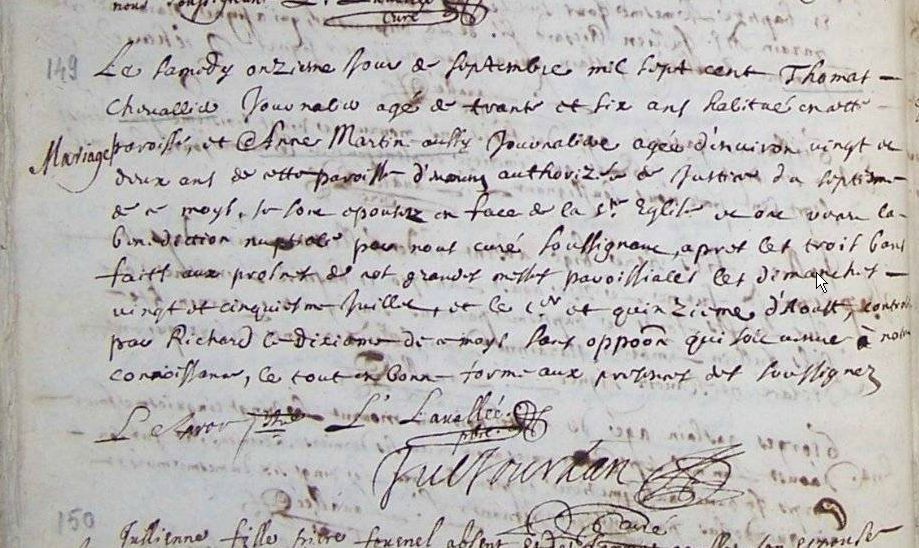 nous soussignant
curé
149
Le samedy onzieme jour de septembre mil sept cent Thomas
Chevallier Journalier agé de trante et six ans habitué en cette
Mariage
paroisse, et Anne Martin aussy Journaliere agée d'environ vingt et
deux ans de cette paroisse d' authorizée de Justice du septieme
de ce moys, se sont epousez en face de la Ste Eglise et ont receu la
benediction nuptiale par nous curé soussignant, apres les trois bans
faits aux prosnes de nos grandes messes paroissiales les dimanches
vingt et cinquiesme Juillet, et le 1er et quinzieme d'Aoust,
par Richard le dixieme de ce moys sans oppoõn qui soit venue à notre
connoissance, le tout en bonne forme aux presences des soussignez
L. Lavallée
ptre
Jul Jourdan
curé
150
Jullienne fille absent